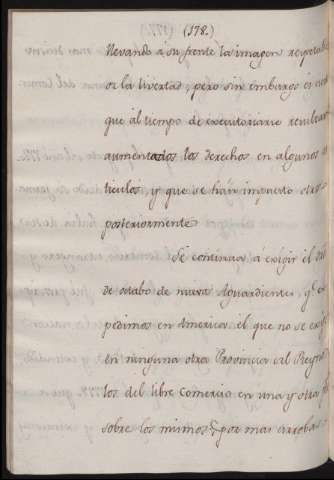 (178.)
llevando á su frente la imagen respetable
de la livertad, pero sin embargo es
que al tiempo de executoriarse resultaron
aumentados los derechos en algunos ar
ticulos, y que se han impuesto otros
posteriormente.
Se continua á exigir el
de octabo de nuevos Aguardientes, q.e ex
pedimos en America, el que no se exige
en ninguna otra Provincia del Reyno
los del libre Comercio en una y otra
sobre los mismos por mas arrobas